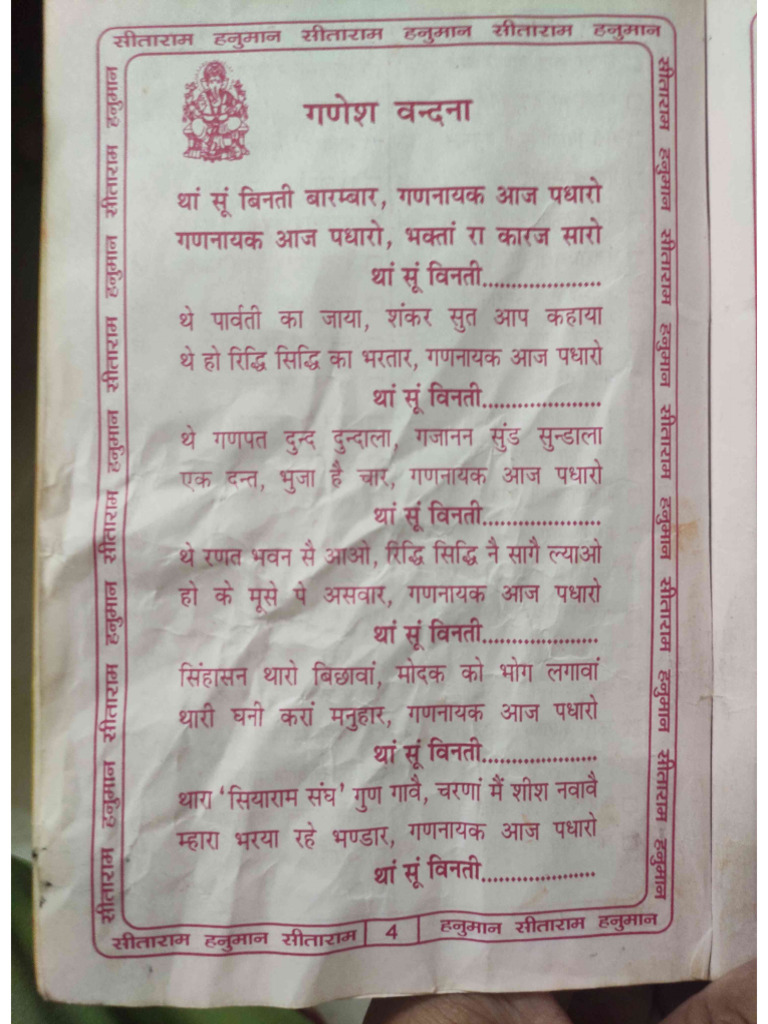 सीताराम हनुमान सीताराम हनुमान सीताराम हनुमान
गणेश वन्दना
थां सूं बिनती बारम्बार, गणनायक आज पधारो
गणनायक आज पधारो, भक्तां रा कारज सारो
थां सूं विनती....................
थे पार्वती का जाया, शंकर सुत आप कहाया
थे हो रिद्धि सिद्धि का भरतार, गणनायक आज पधारो
थां सूं विनती....................
थे गणपत दुन्द दुन्दाला, गजानन सुंड सुन्डाला
एक दन्त, भुजा है चार, गणनायक आज पधारो
थां सूं विनती....................
थे रणत भवन सै आओ, रिद्धि सिद्धि नै सागै ल्याओ
हो के मूसे पे असवार, गणनायक आज पधारो
थां सूं विनती...................
सिंहासन थारो बिछावां, मोदक को भोग लगावां
थारी घनी करां मनुहार, गणनायक आज पधारो
थां सूं विनती...................
थारा ‘सियाराम संघ’ गुण गावै, चरणां मैं शीश नवावै
म्हारा भरया रहे भण्डार, गणनायक आज पधारो
थां सूं विनती...................
सीताराम हनुमान सीताराम 4 हनुमान सीताराम हनुमान
सीताराम हनुमान सीताराम हनुमान सीताराम हनुमान सीताराम हनुमान सीताराम हनुमान
सीताराम हनुमान सीताराम हनुमान सीताराम हनुमान सीताराम हनुमान सीताराम हनुमान